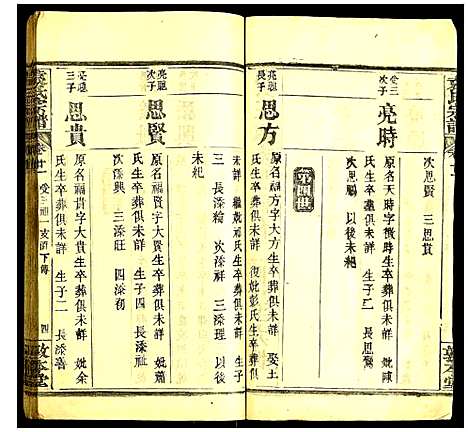 次思賢 三思貴
受三次子
亮時
原名天時字微時生卒葬俱未詳 妣陳
氏生卒葬俱未詳 生子二 長思鸞
次思鵬 以後未詳
第四世
亮聰長子
思方
原名福方字大方生卒葬俱未詳 娶土
氏生卒葬俱未詳 復妣彭氏生卒葬俱
未詳 繼妣 氏生卒葬俱未詳 生子
三 長添綸 次添祥 三添理 以後
未紀
亮聰次子
思賢
原名福賢字大賢生卒葬俱未詳 妣蕭
氏生卒葬俱未詳 生子四 長添祉
次添興 三添旺 四添初
亮聰三子
思貴
原名福貴字大貴生卒葬俱未詳 妣余
氏生卒葬俱未詳 生子二 長添喜
氏宗譜
卷十一 受三 一支 下傳
四
敦本堂